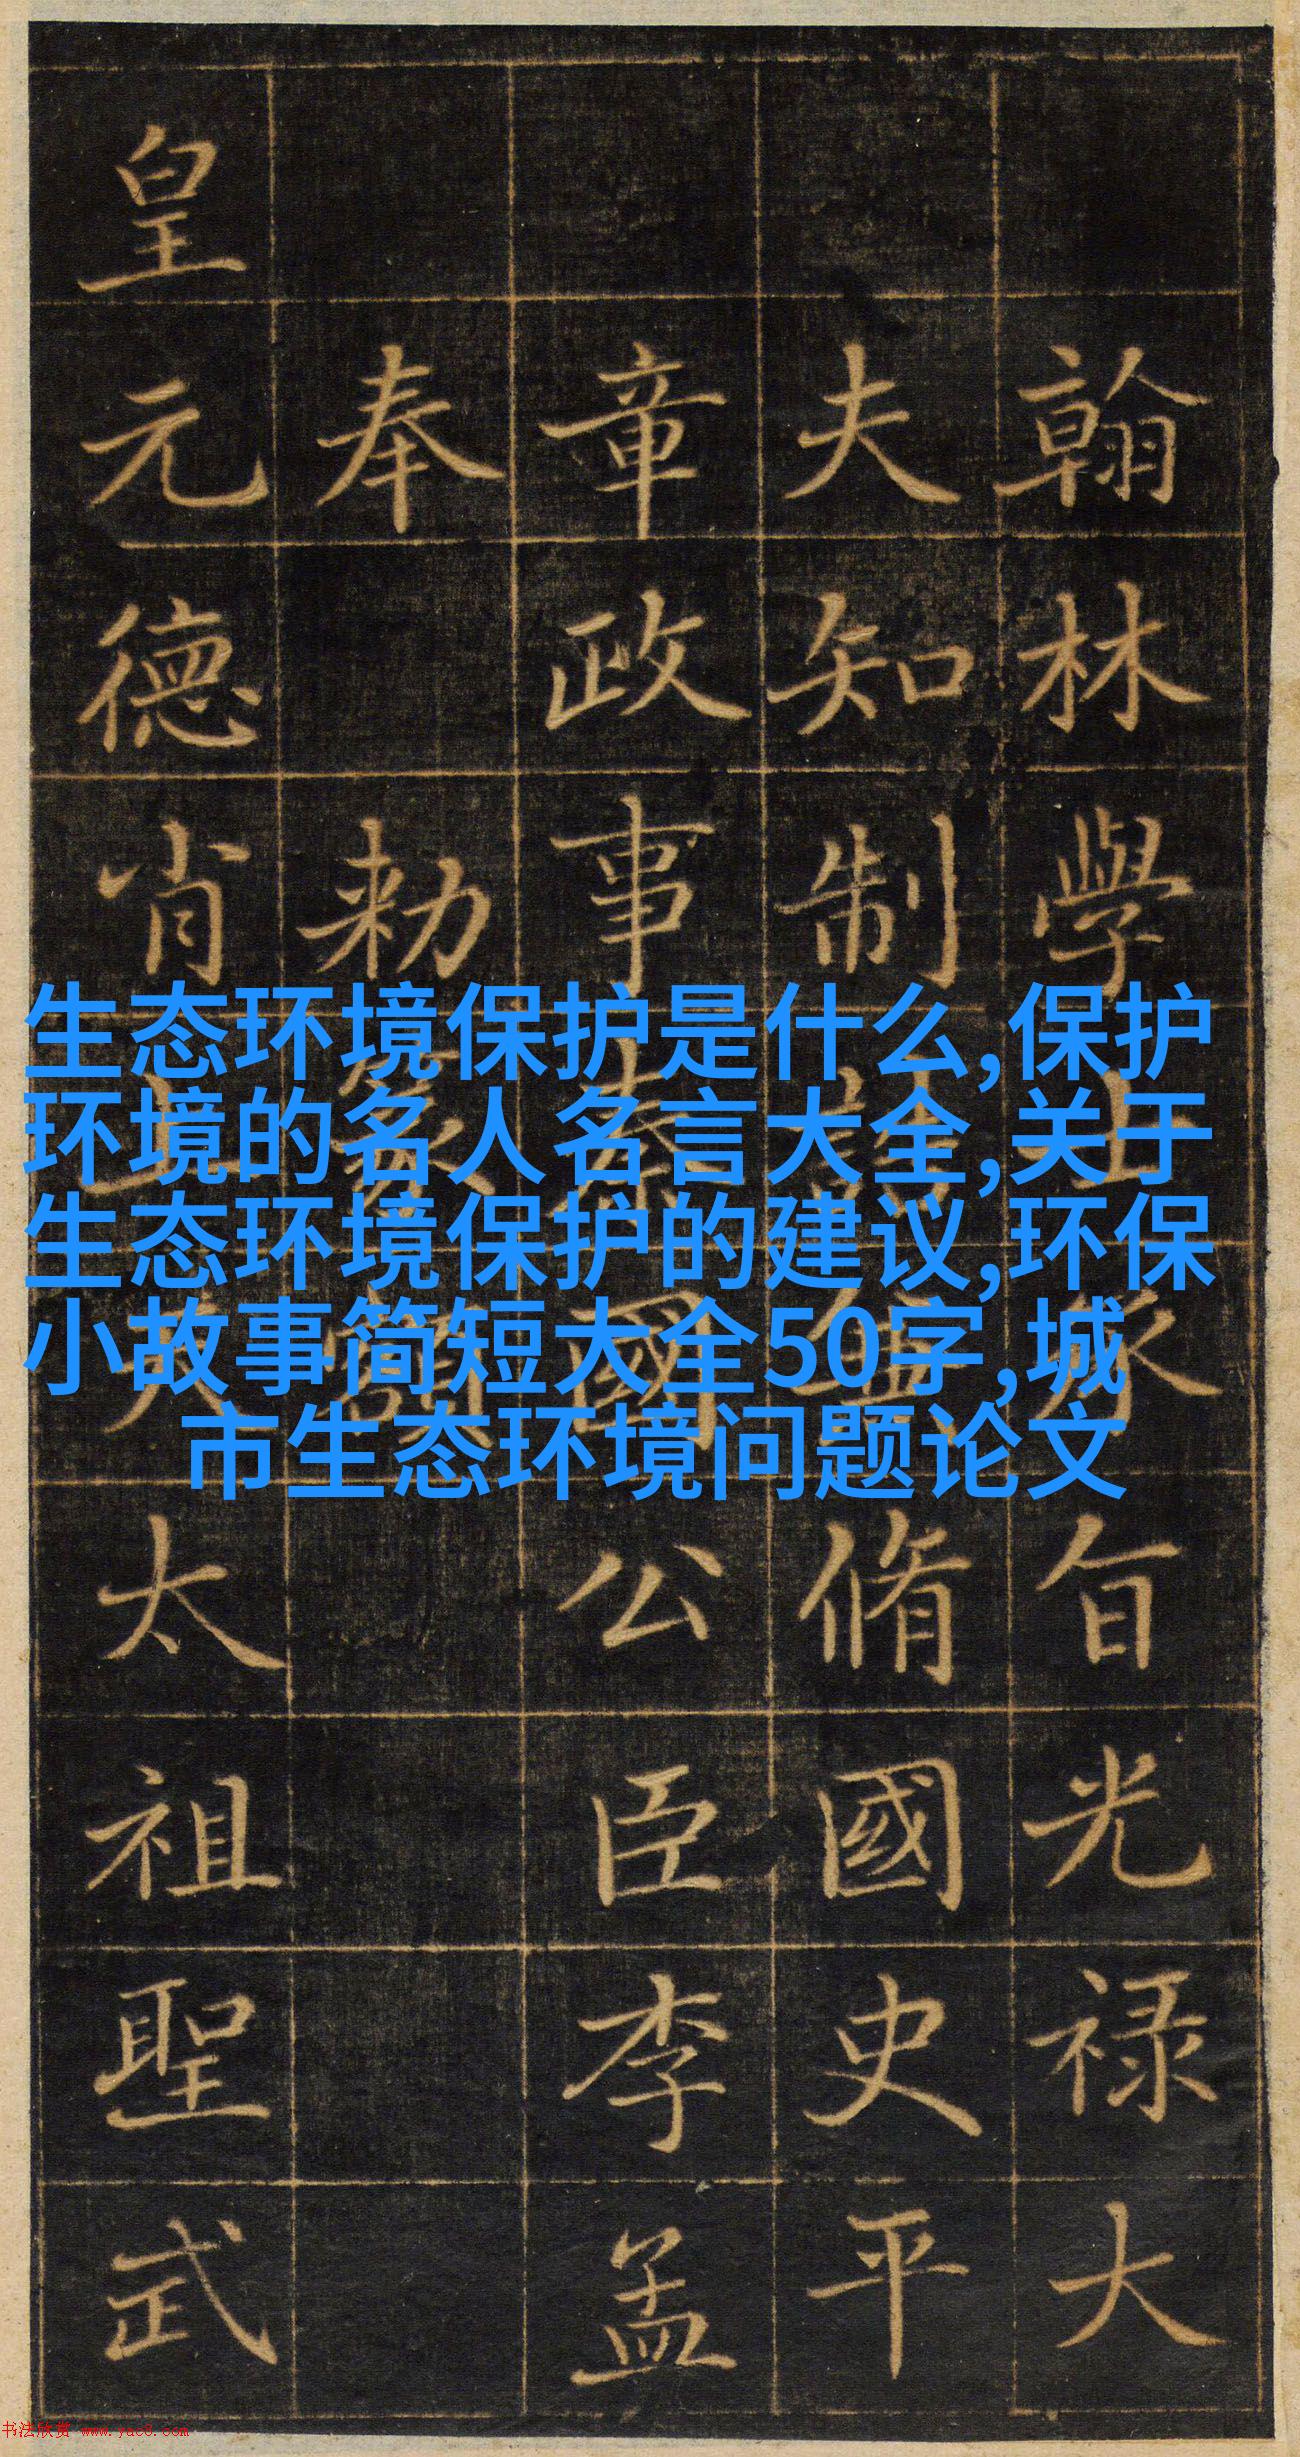 翰林學士承旨光祿大
夫知制誥監脩國史平
章政事秦國公臣李孟
奉勑篆額
皇元德肖上天太祖聖武
生态环境保护是什么,保护
环境的名人名言大全,关于
生态环境保护的建议,环保
小故事简短大全50字,城
市生态环境问题论文
书法欣赏 www.yac8.com